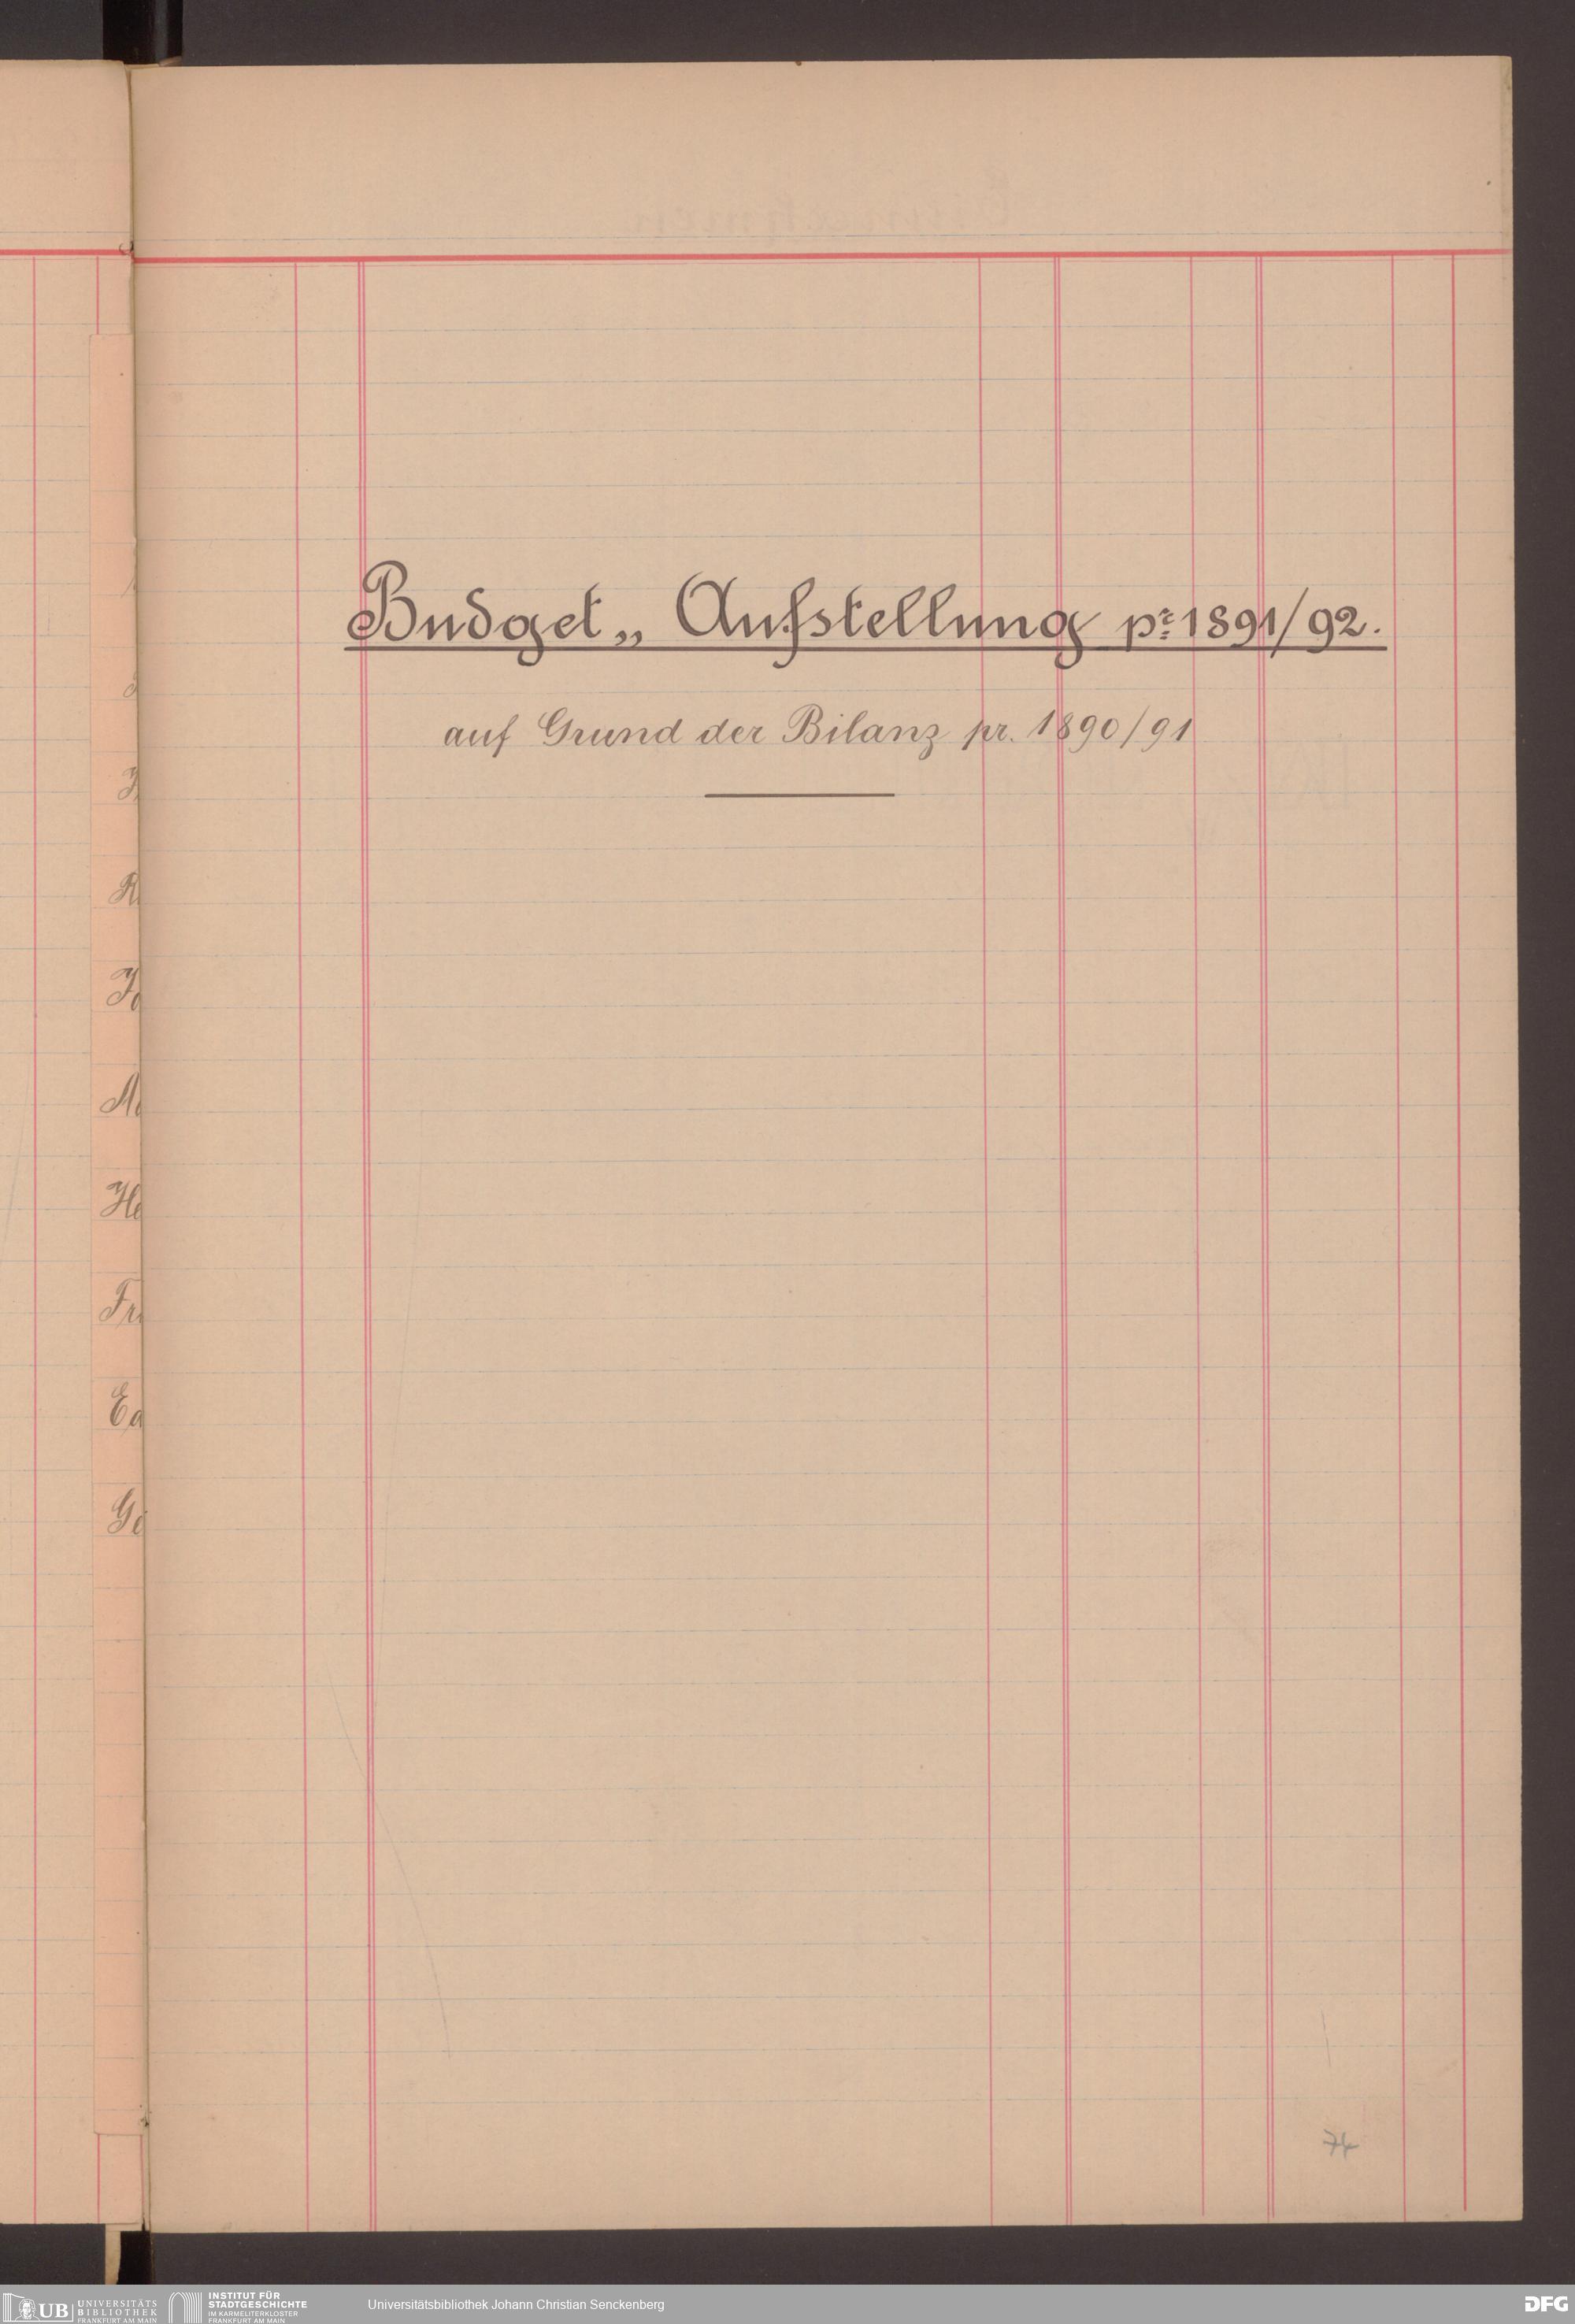 Budget „ Aufstellung pr: 1891/92.
auf Grund der Bilanz pr. 1890/91
R
Fr
Ed
Ge
74
UB
UNIVERSITÄTS
BIBLIOTHEK
FRANKFURT AM MAIN
INSTITUT FÜR
STADTGESCHICHTE
IM KARMELITERKLOSTER
FRANKFURT AM MAIN
Universitätsbibliothek Johann Christian Senckenberg
DFG